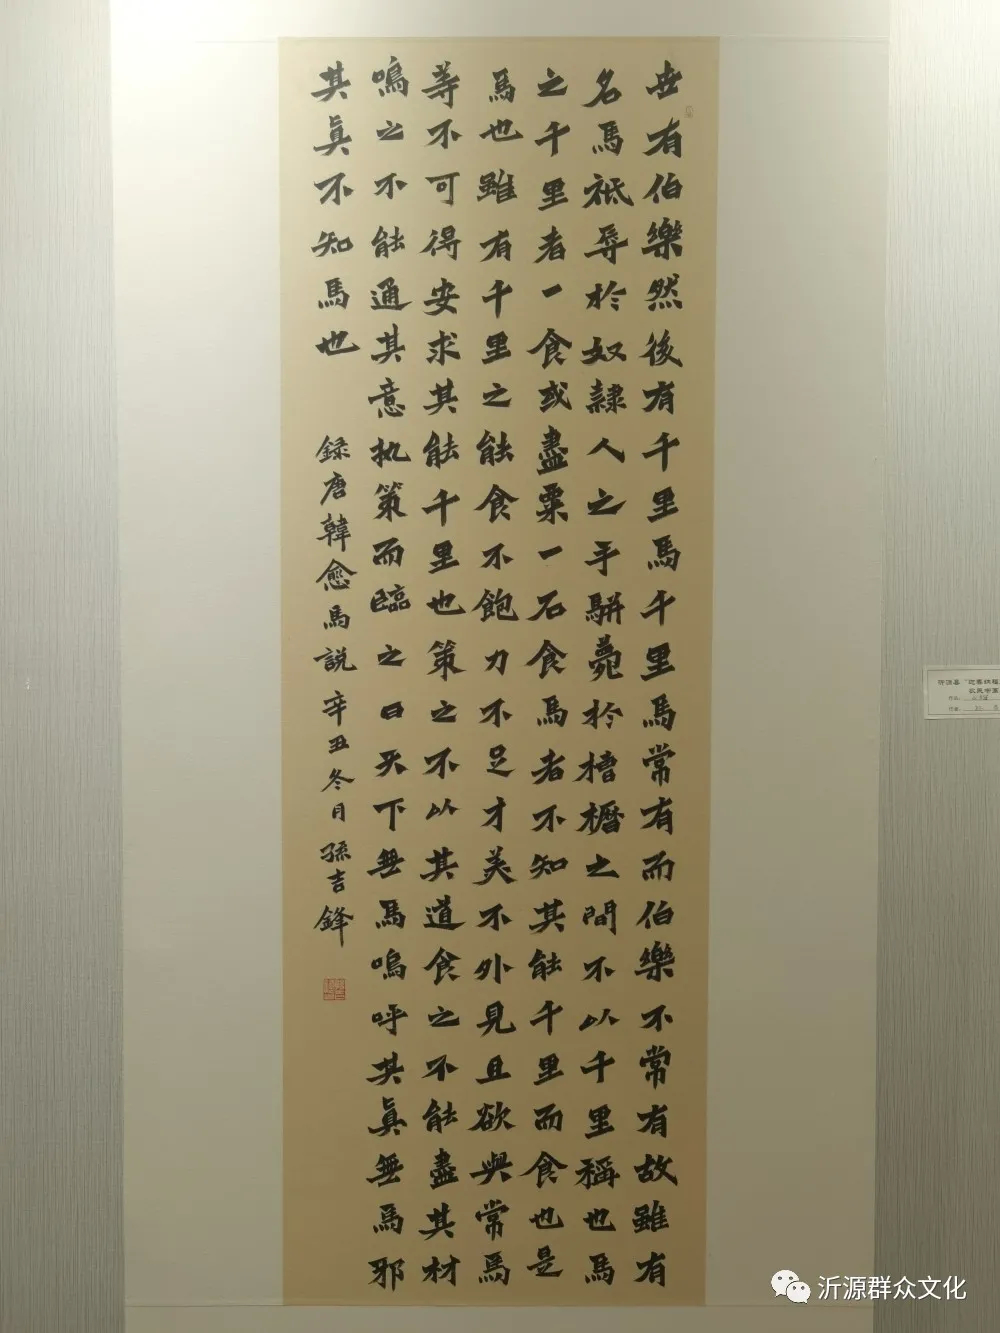 世有伯樂然後有千里馬千里馬常有而伯樂不常有故雖有
名馬祗辱於奴隸人之手駢薨於槽櫪之間不以千里稱也馬
之千里者一食或盡粟一石食馬者不知其能千里而食也是
馬也雖有千里之能食不飽力不足才美不外見且欲與常馬
等不可得安求其能千里也策之不以其道食之不能盡其材
鳴之不能通其意执策而臨之曰天下無馬嗚呼其真無馬邪
其真不知馬也
錄唐韓愈馬說辛丑冬月孫吉鋒
沂源群众文化